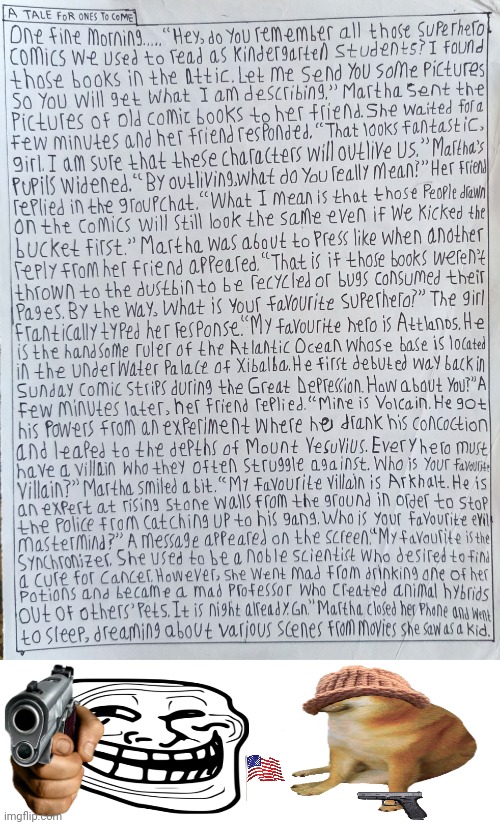 A TALE FOR ONES TO COME
One fine morning....."Hey, do you remember all those superhero
comics we used to read as kindergarten students? I found
those books in the attic. Let me send you some pictures
so you will get what I am describing." Martha sent the
pictures of old comic books to her friend. She waited for a
few minutes and her friend responded. "That looks fantastic,
girl. I am sure that these characters will outlive us." Martha's
pupils widened. "By outliving, what do you really mean?" Her friend
replied in the groupchat. "What I mean is that those people drawn
on the comics will still look the same even if we kicked the
bucket first." Martha was about to press like when another
reply from her friend appeared. "That is if those books weren't
thrown to the dustbin to be recycled or bugs consumed their
pages. By the way. What is your favourite superhero?" The girl
frantically typed her response. "My favourite hero is Attlanos. He
is the handsome ruler of the Atlantic Ocean whose base is located
in the underwater palace of Xibalba. He first debuted way back in
Sunday comic strips during the Great Depression. How about you?" A
few minutes later, her friend replied. "Mine is Volcain. He got
his powers from an experiment where he drank his concoction
and leaped to the depths of Mount Vesuvius. Every hero must
have a villain who they often struggle against. Who is your favourite
villain?" Martha smiled a bit. "My favourite villain is Arkhalt. He is
an expert at rising stone walls from the ground in order to stop
the police from catching up to his gang. Who is your favourite evil
mastermind?" A message appeared on the screen. "My favourite is the
Synchronizer. She used to be a noble scientist who desired to find
a cure for cancer. However, she went mad from drinking one of her
potions and became a mad professor who created animal hybrids
out of others' pets. It is night already. Gn." Martha closed her phone and went
to sleep, dreaming about various scenes from movies she saw as a kid.
imgflip.com